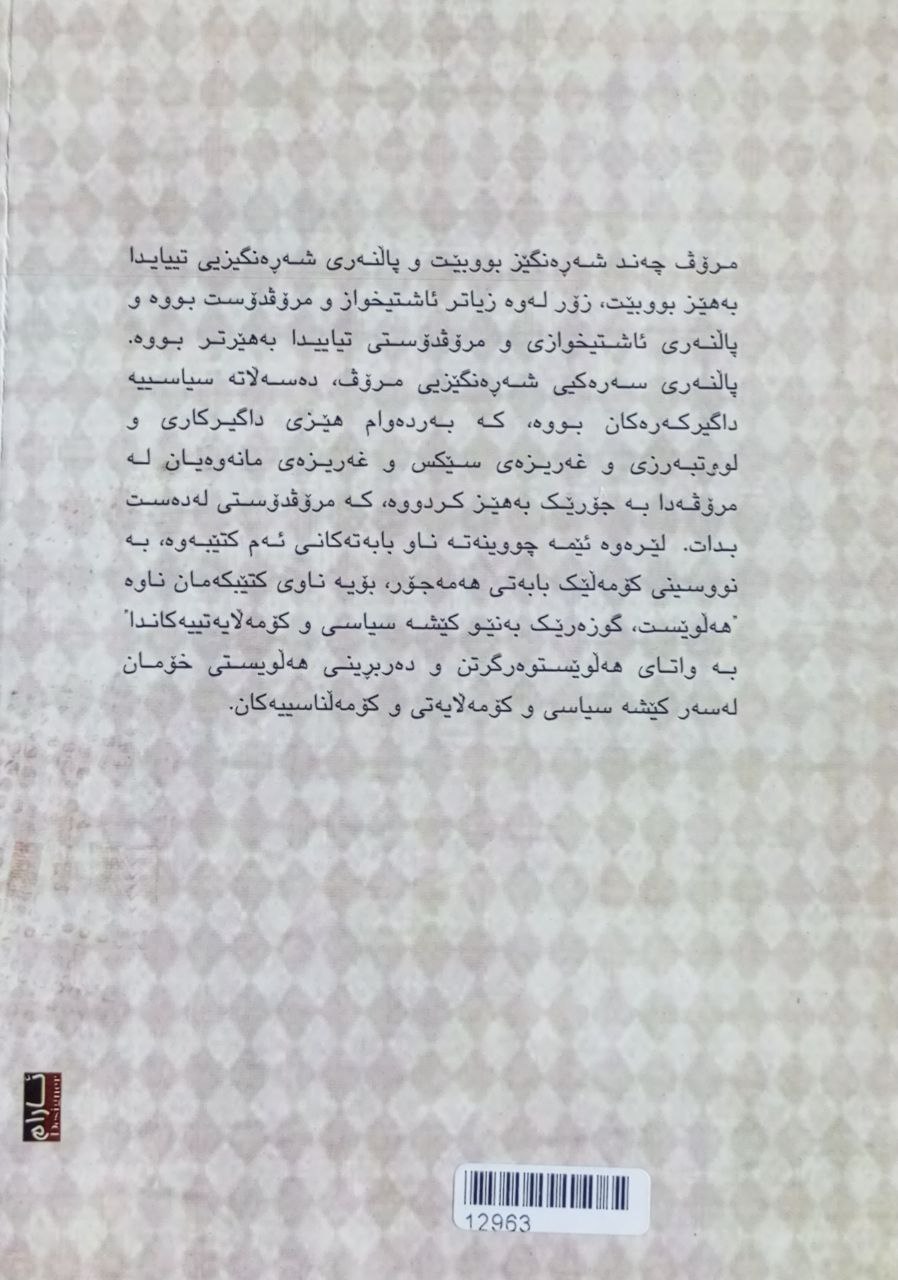 مرۆڤ چەند شەڕەنگێز بووبێت و پاڵنەری شەڕەنگیزیی تییایدا
بەهێز بووبێت، زۆر لەوە زیاتر ئاشتیخواز و مرۆڤدۆست بووە و
پاڵنەری ئاشتیخوازی و مرۆڤدۆستی تیاییدا بەهێرتر بووە.
پاڵنەری سەرەکیی شەڕەنگێزیی مرۆڤ، دەسەڵاتە سیاسییە
داگیرکەرەکان بووە، کە بەردەوام هێزی داگیرکاری و
لووتبەرزی و غەریزەی سێکس و غەریزەی مانەوەیان لە
مرۆڤەدا بە جۆرێک بەهێز کردووە، کە مرۆڤدۆستی لەدەست
بدات. لێرەوە ئێمە چووینەتە ناو بابەتەکانی ئەم کتێبەوە، بە
نووسینی کۆمەڵێک بابەتی هەمەجۆر، بۆیە ناوی کتێبکەمان ناوە
"هەڵوێست، گوزەرێک بەنێو کێشە سیاسی و کۆمەلایەتییەکاندا"
بە واتای هەڵوێستوەرگرتن و دەربڕینی هەڵویستی خۆمان
لەسەر کێشە سیاسی و کۆمەڵایەتی و کۆمەڵناسییەکان.
ئارام
Designer
12963